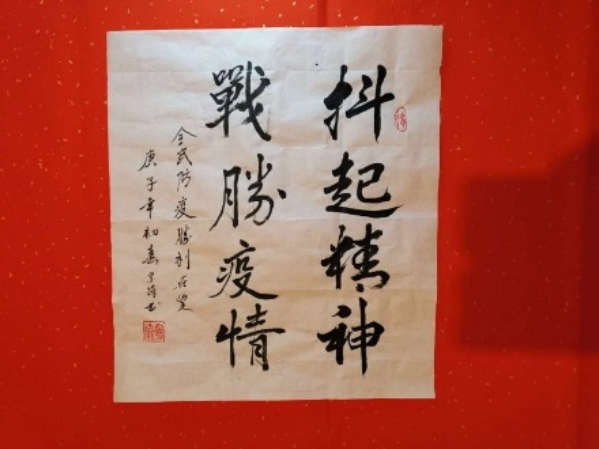 抖起精神
戰勝疫情
全民防疫勝利在望
庚子年初春